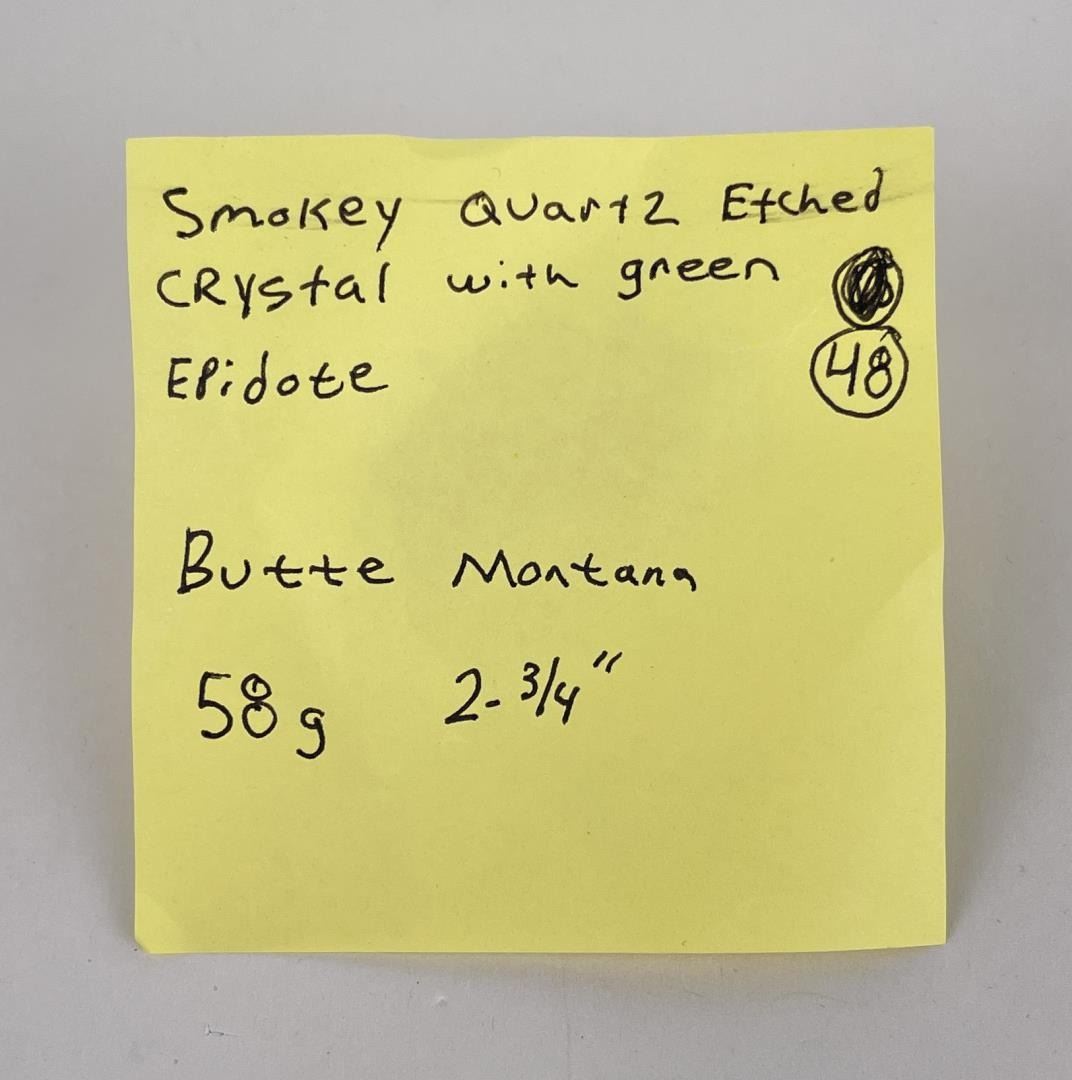 Smokey Quartz Etched
CRystal with green
48
EPidote
Butte Montana
58g 2-3/4"